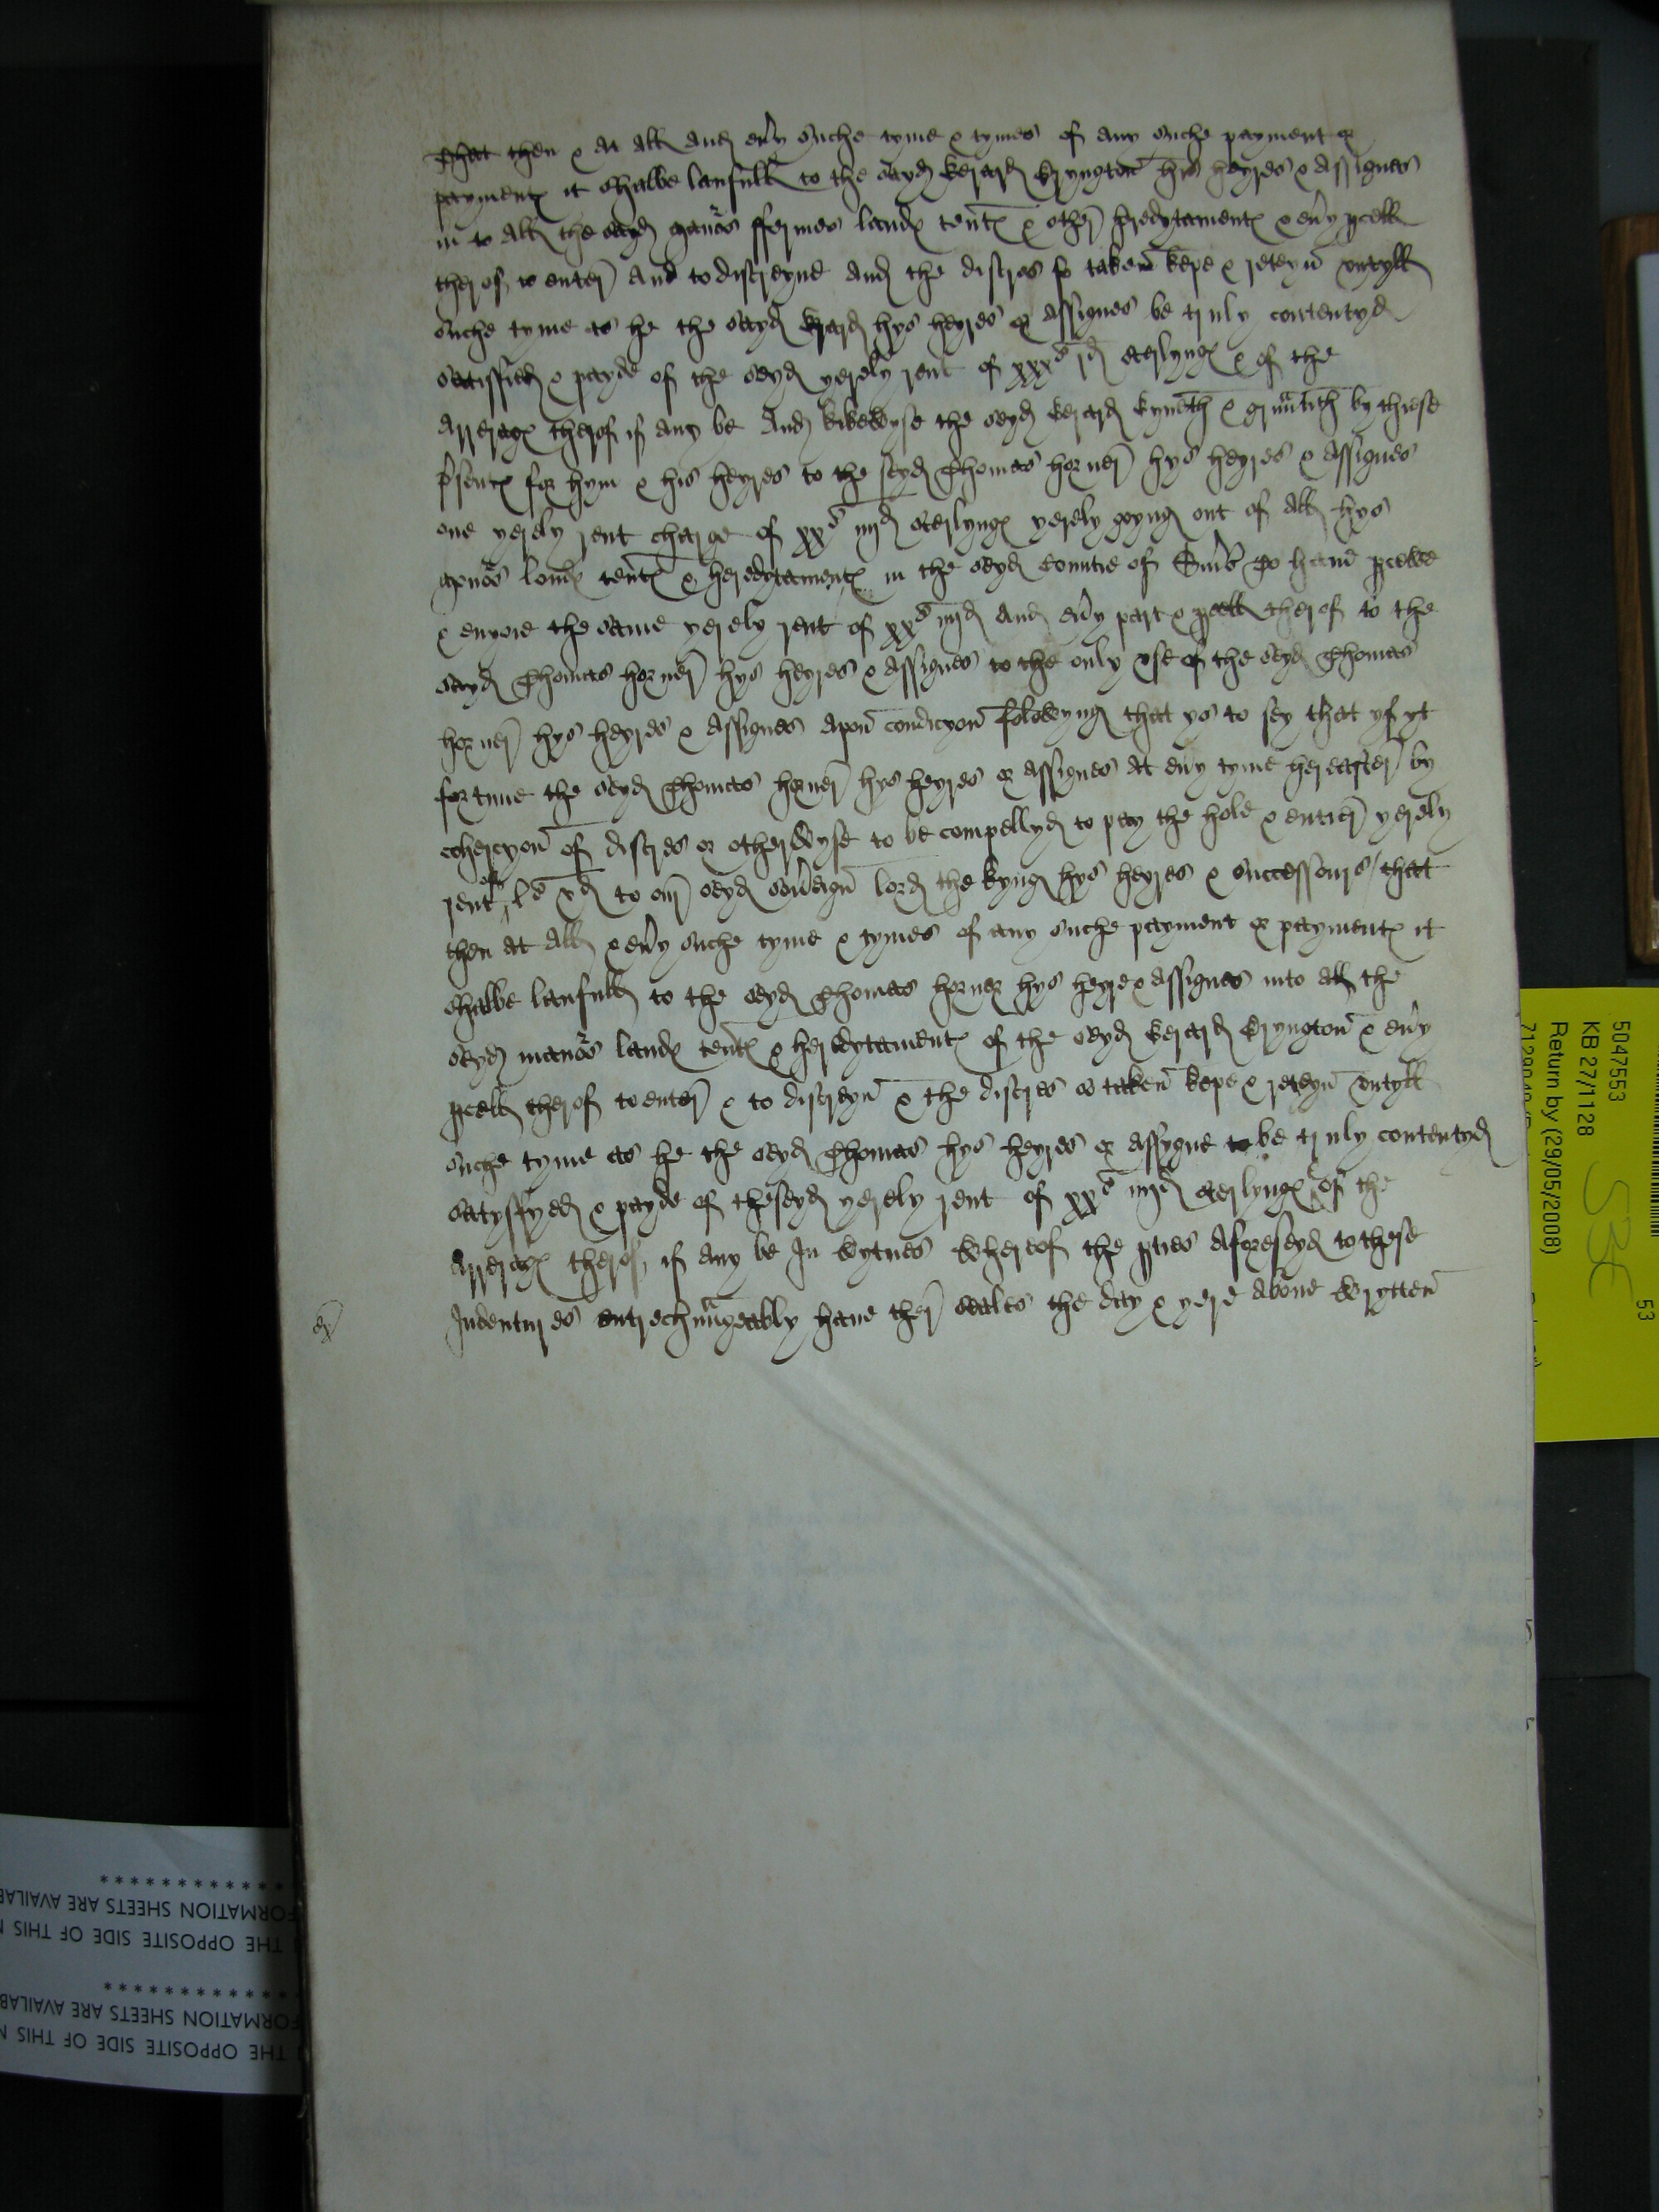 that then & at all and eu'y suche tyme & tymes of any suche payment or
payment℮ it shalbe laufull to the seyd Gerard Eryngton his heyres & assignes
in to all the seyd Manors ffermes land℮ ten't℮ & other heredytament℮ & eu'y p'cell
therof to enter and to distreyne and the distres so taken kepe & reteyn vntyll
suche tyme as he the seyd Gerard hys heyres or assignes be truly contentyd
satisfied & payde of the seyd yerely rent of xxxs jd sterlyng℮ & of the
arrerag℮ therof if any be And likewyse the seyd Gerard by these
p'sent℮ for hym & his heyres to the seyd Thomas Horner hys heyres & assignes
one yerely rent charge of xxs iiijd sterlyng℮ yerely goyng out of all hys
Manors lond℮ ten't℮ & heredytament℮ in the seyd Countie of To haue p'ceve
& enyoie the same yerely rent of xxs iiijd and eu'y part & p'cell therof to the
seyd Thomas Horner hys heyres & assignes to the only vse of the seyd Thomas
Horner hys heyres & assignes apon condicyon folowyng that ys to sey that yf yt
fortune the seyd Thomas Horner hys heyres or assignes at eny tyme hereafter by
cohercyon of distres or otherwyse to be compellyd to pay the hole & entier yerely
rent of ls vd to our seyd sou'eign lord the kyng hys heyres & successours / that
then at all & eu'y suche tyme & tymes of any suche payment or payment℮ it
shalbe laufull to the seyd Thomas Horner hys heyre & assignes into all the
seyd manors land℮ ten't℮ & heredytament℮ of the seyd Gerard Eryngton & eu'y
p'cell therof to enter & to distreyn & the distres so taken kepe & reteyn vntyll
suche tyme as he the seyd Thomas hys heyres or assygne to be truly contentyd
satysfyed & payde of the seyd yerely rent of xxs iiijd sterlyng℮ & of the
arrerag℮ therof if any be In wytnes whereof the p'ties aforeseyd to these
Indentures entrechaungeably haue ther seales the day & yere aboue wrytten
5047553
KB 27/1128
Return by (29/05/2008)
53
THE OPPOSITE SIDE OF THIS
FORMATION SHEETS ARE AVAILAB
************
THE OPPOSITE SIDE OF THIS
FORMATION SHEETS ARE AVAILAB
************